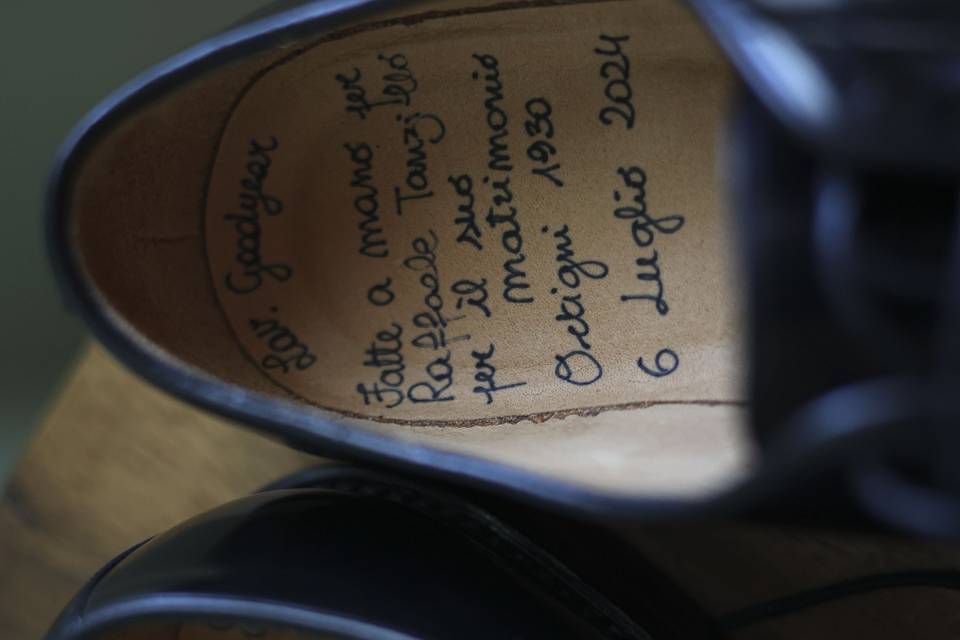 Lav. Goodyear
Fatte a mano per
Raffaele Tanzillo
per il suo
matrimonio
Ortigni 1930
6 Luglio 2024